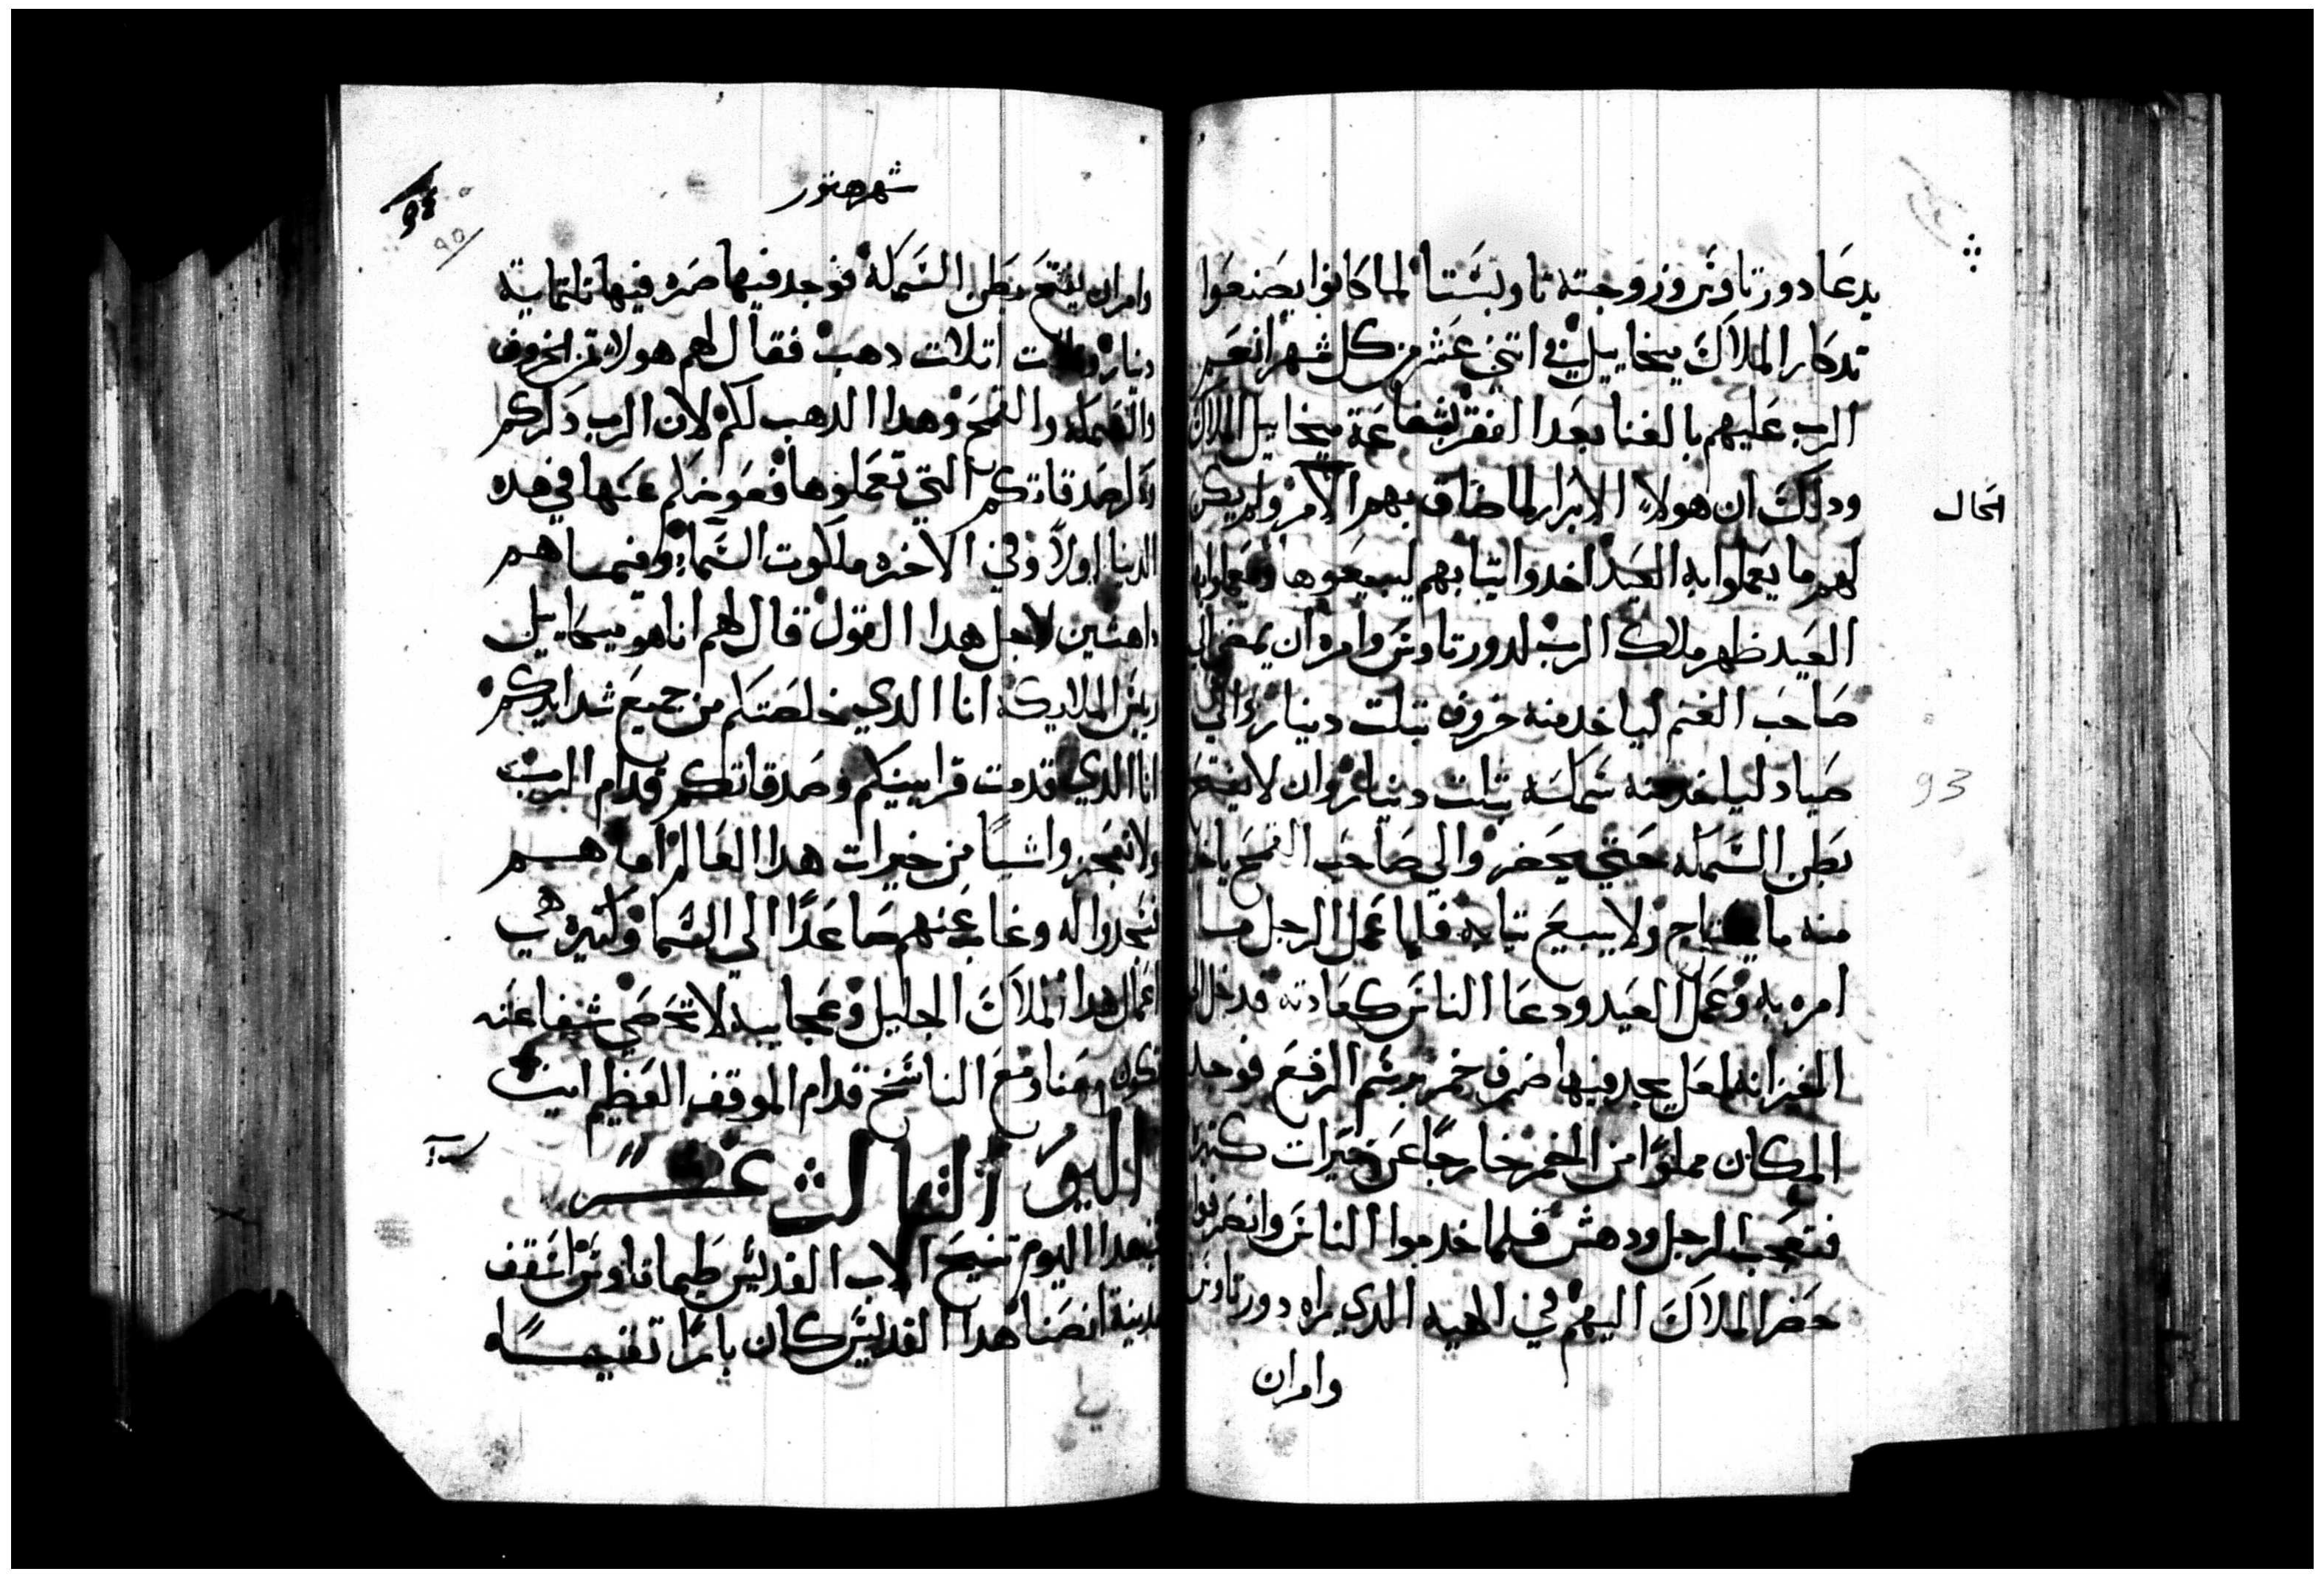 يدعا دورتاوس وزوجته تاوبستا لما كانوا يصنعوا
تدكار الملاك ميخاييل في اتني عشر من كل شهر انعم
الرب عليهم بالغنا بعد الفقر بشفاعة ميخاييل الملاك
ودلك ان هولاء الابرار لما ضاق بهم الامر ولم يكن
الحال
لهم ما يعملوا به العيد اخدوا تيابهم ليبيعوها ويعملوا به
العيد ظهر ملاك الرب لدورتاوس وامره ان يمضي الي
صاحب الغنم لياخد منه خروف بتلت دينار والي
صياد لياخد منه سمكة بتلت دينار وان لا يفتح
93
بطن السمكه حتي يحضر والي صاحب القمح ياخد
منه ما يحتاج ولا يبيع تيابه فلما عمل الرجل ما
امره به وعمل العيد ودعا الناس كعادته فدخل الي
الخزانه لعل يجد فيها ظرف خمر برسم الرفع فوجد
المكان مملوا من الخمر خارجا عن خيرات كتيرا
فتعجب الرجل ودهش فلما خدموا الناس وانصرفوا
حضر الملاك اليهم في الهيه الدي يراه دورتاوس
وامران
شهر هتور
٩٥
وامران يفتح بطن السمكه فوجد فيها صره فيها تلتماية
دينار وتلات اتلات دهب فقال لهم هولاء تمن الخروف
والسمكه والقمح وهدا الدهب لكم لان الرب دكركم
ودكر صدقاتكم التي تعملوها فعوضكم عنها في هده
الدنيا اولا وفي الاخره ملكوت السماء وفيما هم
داهشين لاجل هدا القول قال لهم انا هو ميخاييل
ريس الملايكه انا الدي خلصتكم من جميع شدايدكم
انا الدي قدمت قرابينكم وصدقاتكم قدام الرب
ولا تعجزوا شيا من خيرات هدا العالم اما هم
فسجدوا له وغاب عنهم صاعدا الي السما وكتيره هي
اعمال هدا الملاك الجليل وعجايبه لا تحصي شفاعته
تكون معنا ومع الناسخ قدام الموقف العظيم امين
اليوم الثالث عشر
في هدا اليوم تنيح الاب القديس طيماتاوس اسقف
مدينة انصنا هدا القديس كان بارا تقيا